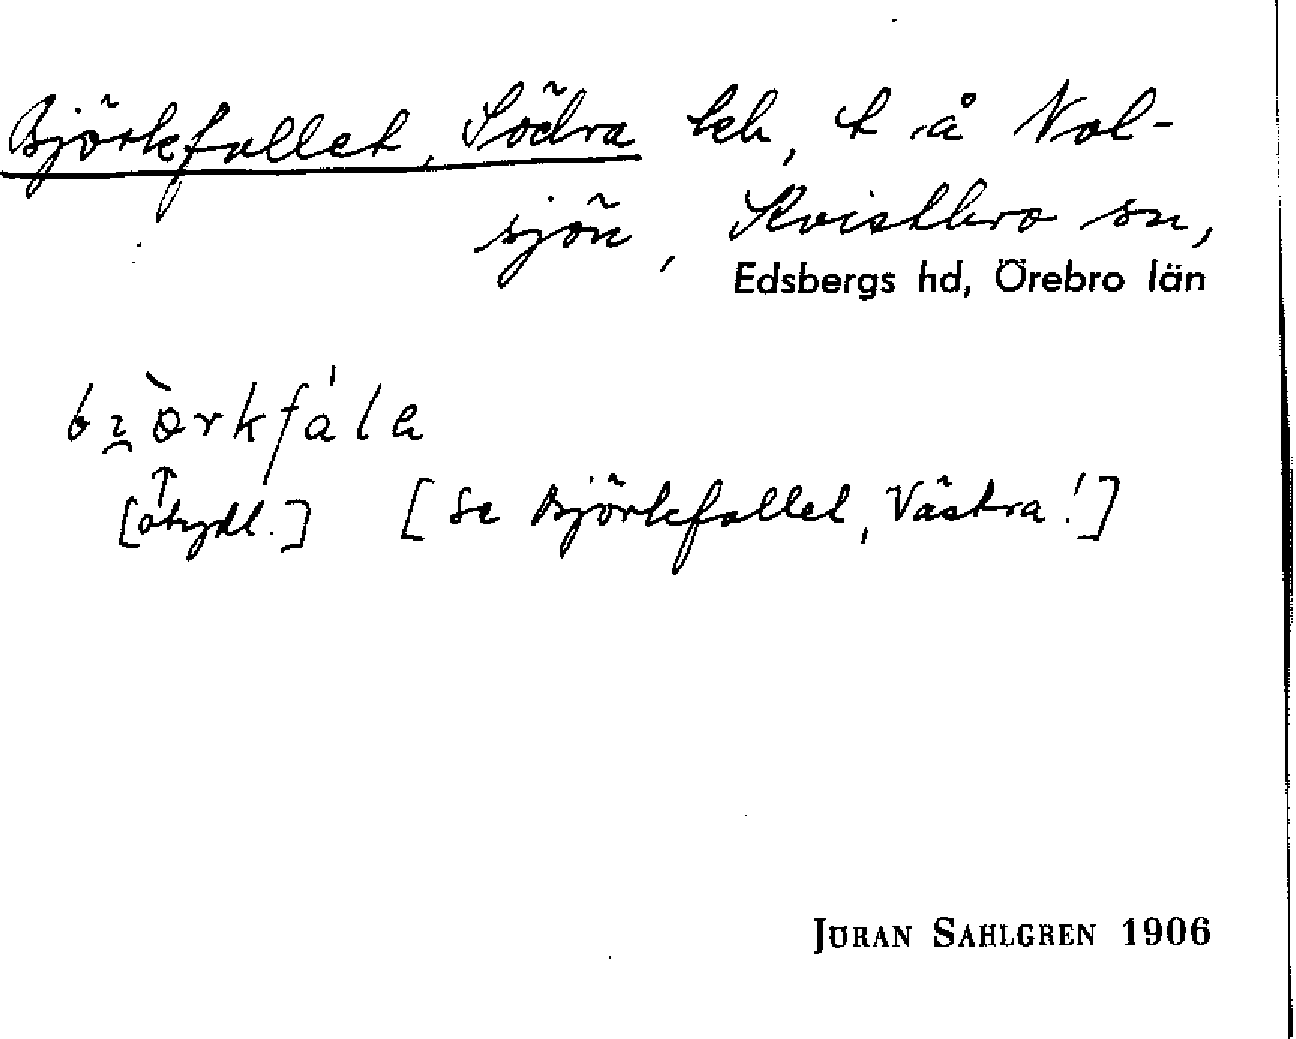 Björkfallet, Södra lch, t. å Nol-
sjön, Kvistbro sn,
Edsbergs hd, Örebro län
bɪ̯ö̀rkfála
[otydl.] [Se Björkfallet, Västra!]
JÖRAN SAHLGREN 1906